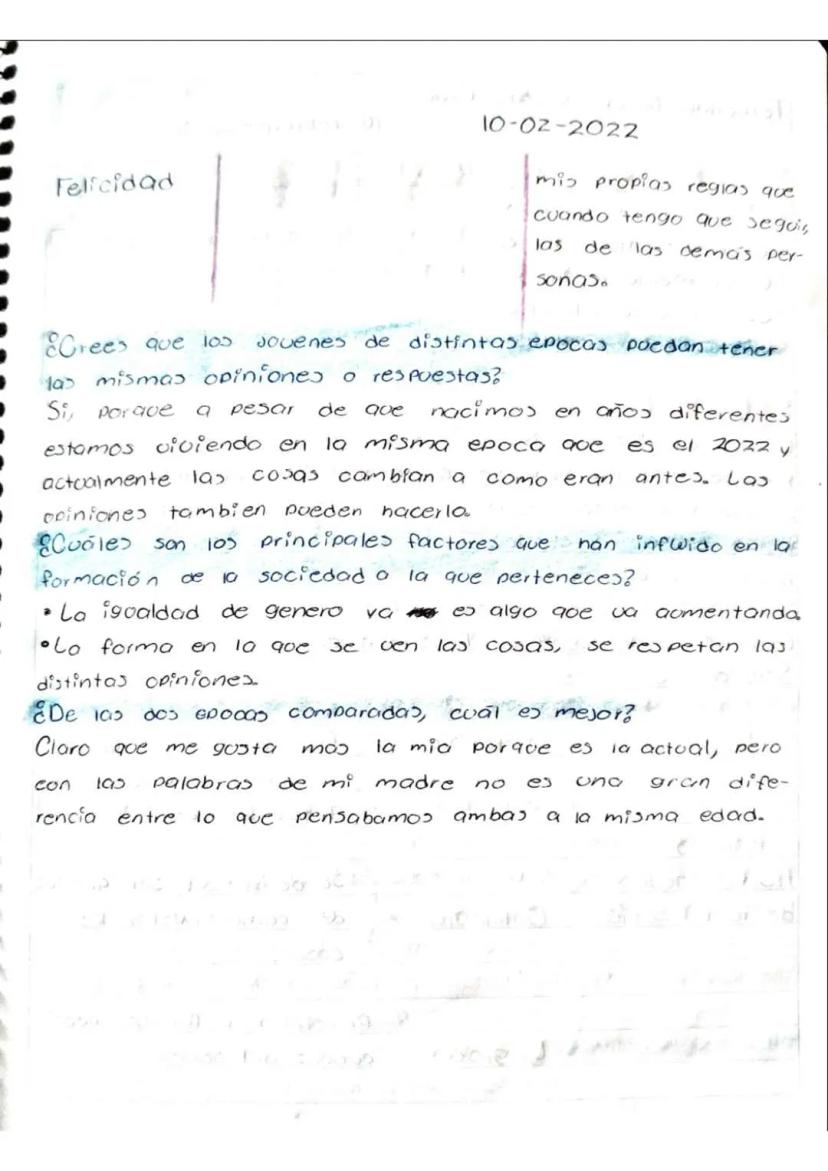 10-02-2022
Felicidad
mis propias reglas que
cuando tengo que seguir
las de las demás per-
sonas.
¿Crees que los jovenes de distintas epocas puedan tener
las mismas opiniones o respuestas?
Si, porque a pesar de que nacimos en años diferentes
estamos viviendo en la misma epoca que es el 2022 y
actualmente las cosas cambian a como eran antes. Las
opiniones tambien pueden hacerlo.
¿Cuáles son los principales factores que han influido en la
formación de la sociedad a la que perteneces?
• La igualdad de genero va es algo que va aumentando.
• La forma en la que se ven las cosas, se respetan las
distintas opiniones.
¿De las dos epocas comparadas, cuál es mejor?
Claro que me gusta más la mia porque es la actual, pero
con las palabras de mi madre no es una gran dife-
rencia entre lo que pensabamos ambas a la misma edad.